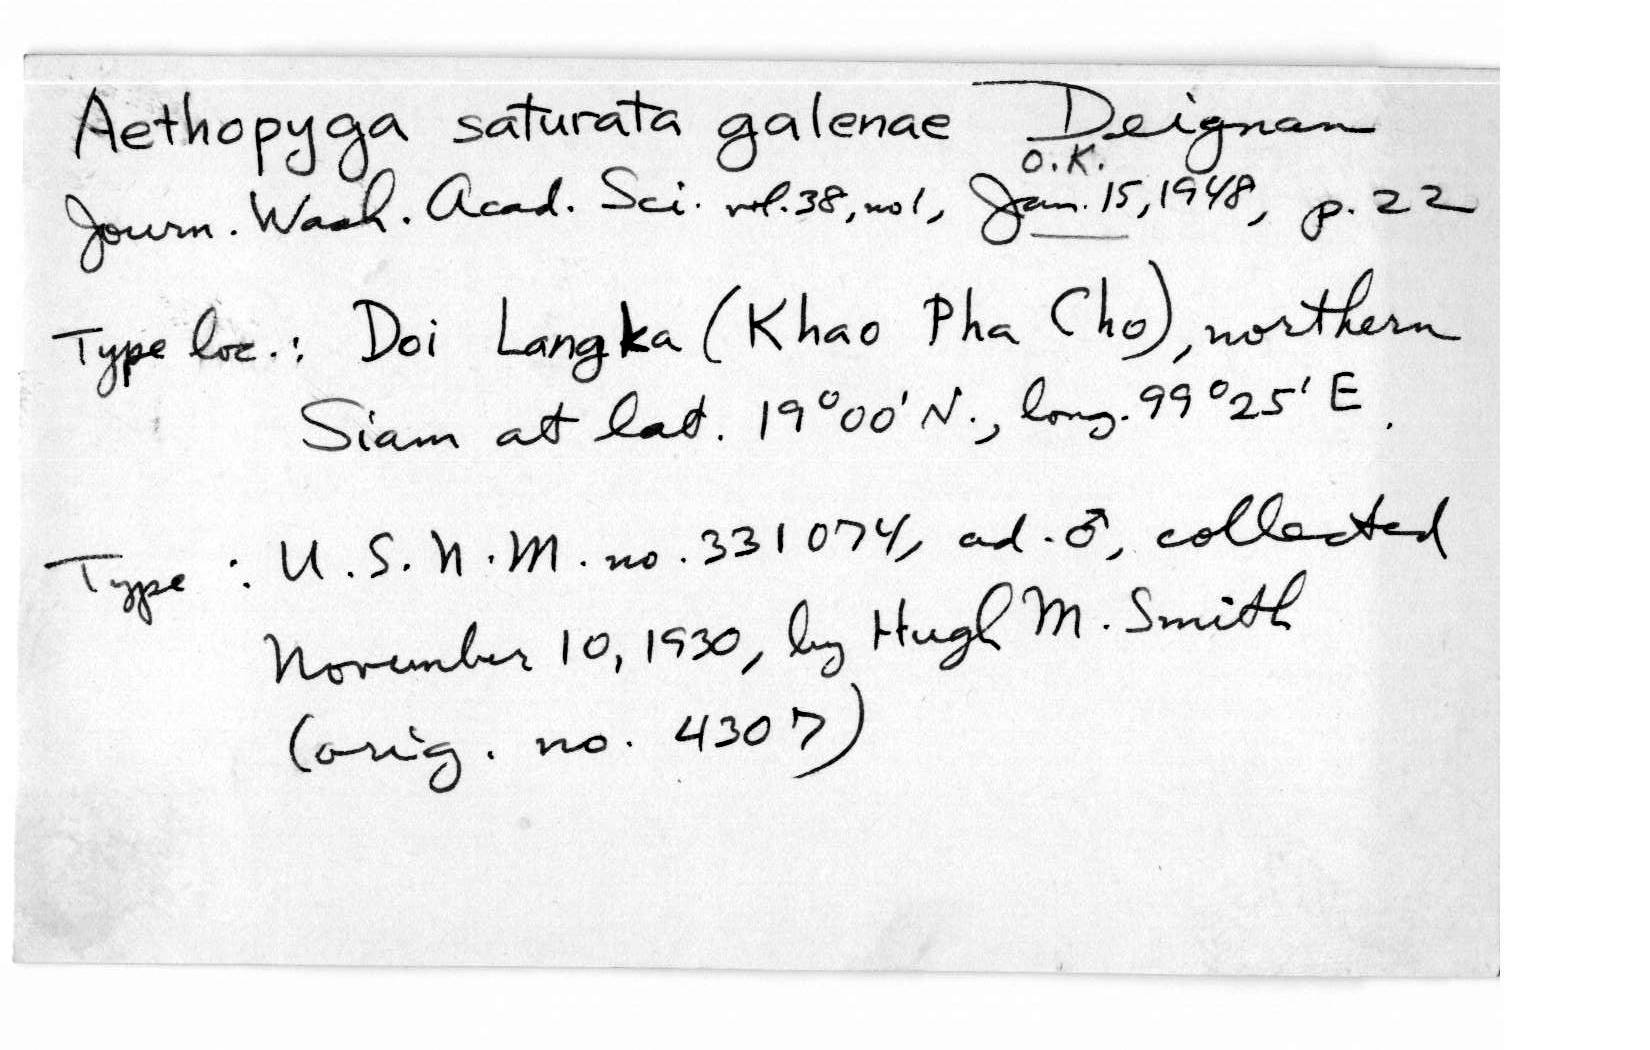 Aethopyga saturata galenae Deignan
O.K.
Journ. Wash. Acad. Sci. vol. 38, no 1, Jan. 15, 1948, p. 22
Type loc.: Doi Langka (Khao Pha Cho), northern
Siam at lat. 19°00' N., long. 99°25' E.
Type: U.S.N.M. no. 331074, ad. ♂, collected
November 10, 1930, by Hugh M. Smith
(orig. no. 4307)